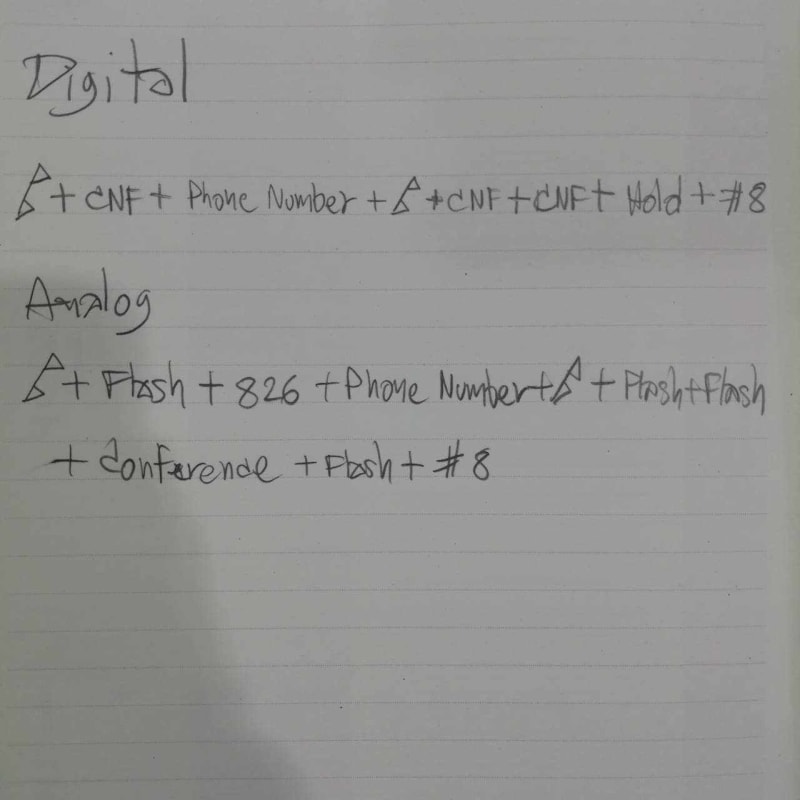 Digital
+ CNF + Phone Number + + CNF + CNF + Hold + #8
Analog
+ Flash + 826 + Phone Number + + Flash + Flash
+ Conference + Flash + #8